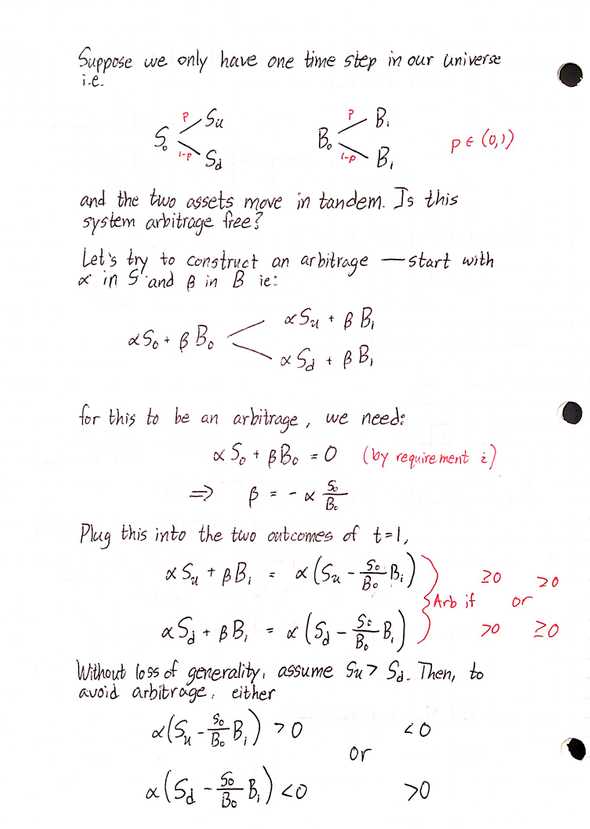 Suppose we only have one time step in our universe
i.e.
P Su P B₁
S₀ B₀ p ∈ (0,1)
1-P Sd 1-P B₁
and the two assets move in tandem. Is this
system arbitrage free?
Let's try to construct an arbitrage — start with
α in S and β in B ie:
αSu + βB₁
αS₀ + βB₀
αSd + βB₁
for this to be an arbitrage, we need:
αS₀ + βB₀ = 0 (by requirement i)
⇒ β = -α S₀/B₀
Plug this into the two outcomes of t=1,
αSu + βB₁ = α(Su - S₀/B₀ B₁) ≥0 >0
Arb if or
αSd + βB₁ = α(Sd - S₀/B₀ B₁) >0 ≥0
Without loss of generality, assume Su > Sd. Then, to
avoid arbitrage, either
α(Su - S₀/B₀ B₁) >0 <0
or
α(Sd - S₀/B₀ B₁) <0 >0